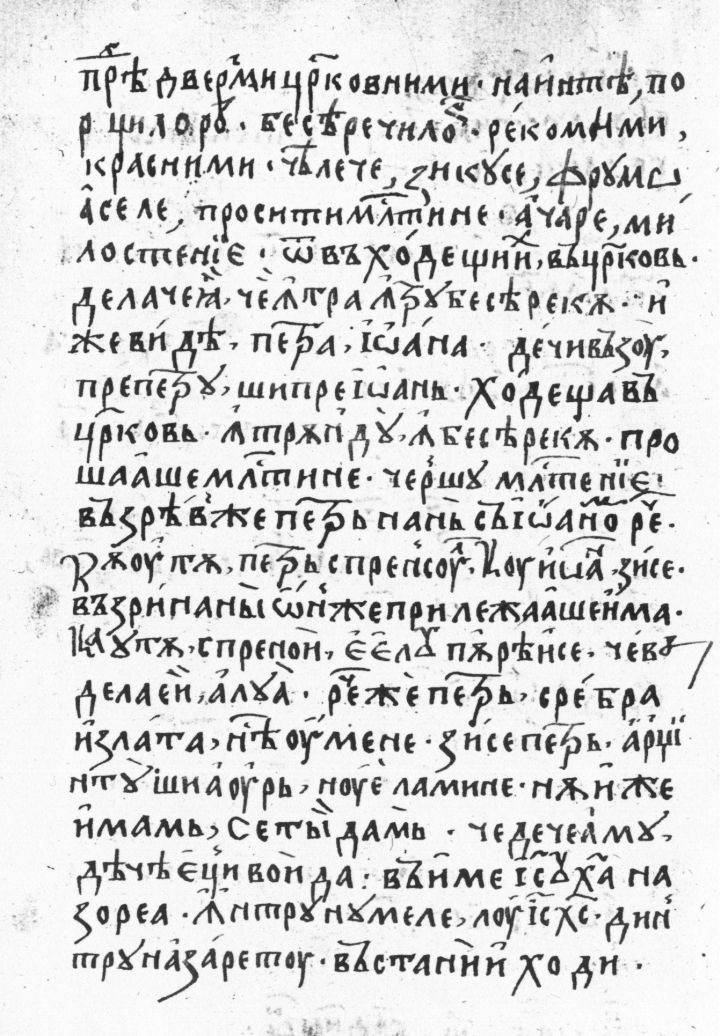 прѣ двер҆ми цр҃ковними · наинтѣ, по
р цилѡ рꙋ · бесѣречилѡр · рекомїми,
красними · че лѣче, зикꙋсе, фрꙋмѡ
асе ле, проситимлⷭ҇тине · ачѧре, ми
лостенїе · ѿ въходещиих, въцр҃ковь ·
делачеїа, чеꙟтра ꙟтрꙋбесѣрекѫ · и
же видѣ, петра, їѡана · дечивъзоꙋ,
препетрꙋ, шипреїѡань · ходеща въ
цр҃ковь · ꙟтрѫндꙋ, ꙟбесѣрекѫ · про
шаашемлⷭ҇тине · чершꙋ млⷭ҇тенїе ·
възрѣв же петрь нань съїѡаномь рⷱ҇е ·
кѫоꙋтѫ, петрь спренсоꙋ, коꙋиѡан, зисе ·
възринаны ѡнже прилежаашеима ·
каꙋтѫ, спреной, ѐѐлꙋ пѫрѣисе, чевꙋ
делаей, алꙋа · рⷱ҇ежепетрь, сребра
излата, нѣ оꙋмене · зисепетрь, арџї
нтꙋ шиаоꙋрь, ноꙋе ламине · нѫ иже
имамь, сеты дамь · чедечеамꙋ,
дѣчѣ єции вой да : въиме і҃сꙋ х҃а на
зореа · ꙟнтрꙋ нꙋмеле, лоꙋ і҃с х҃с · дин
трꙋназаретоꙋ · въстании ходи ·